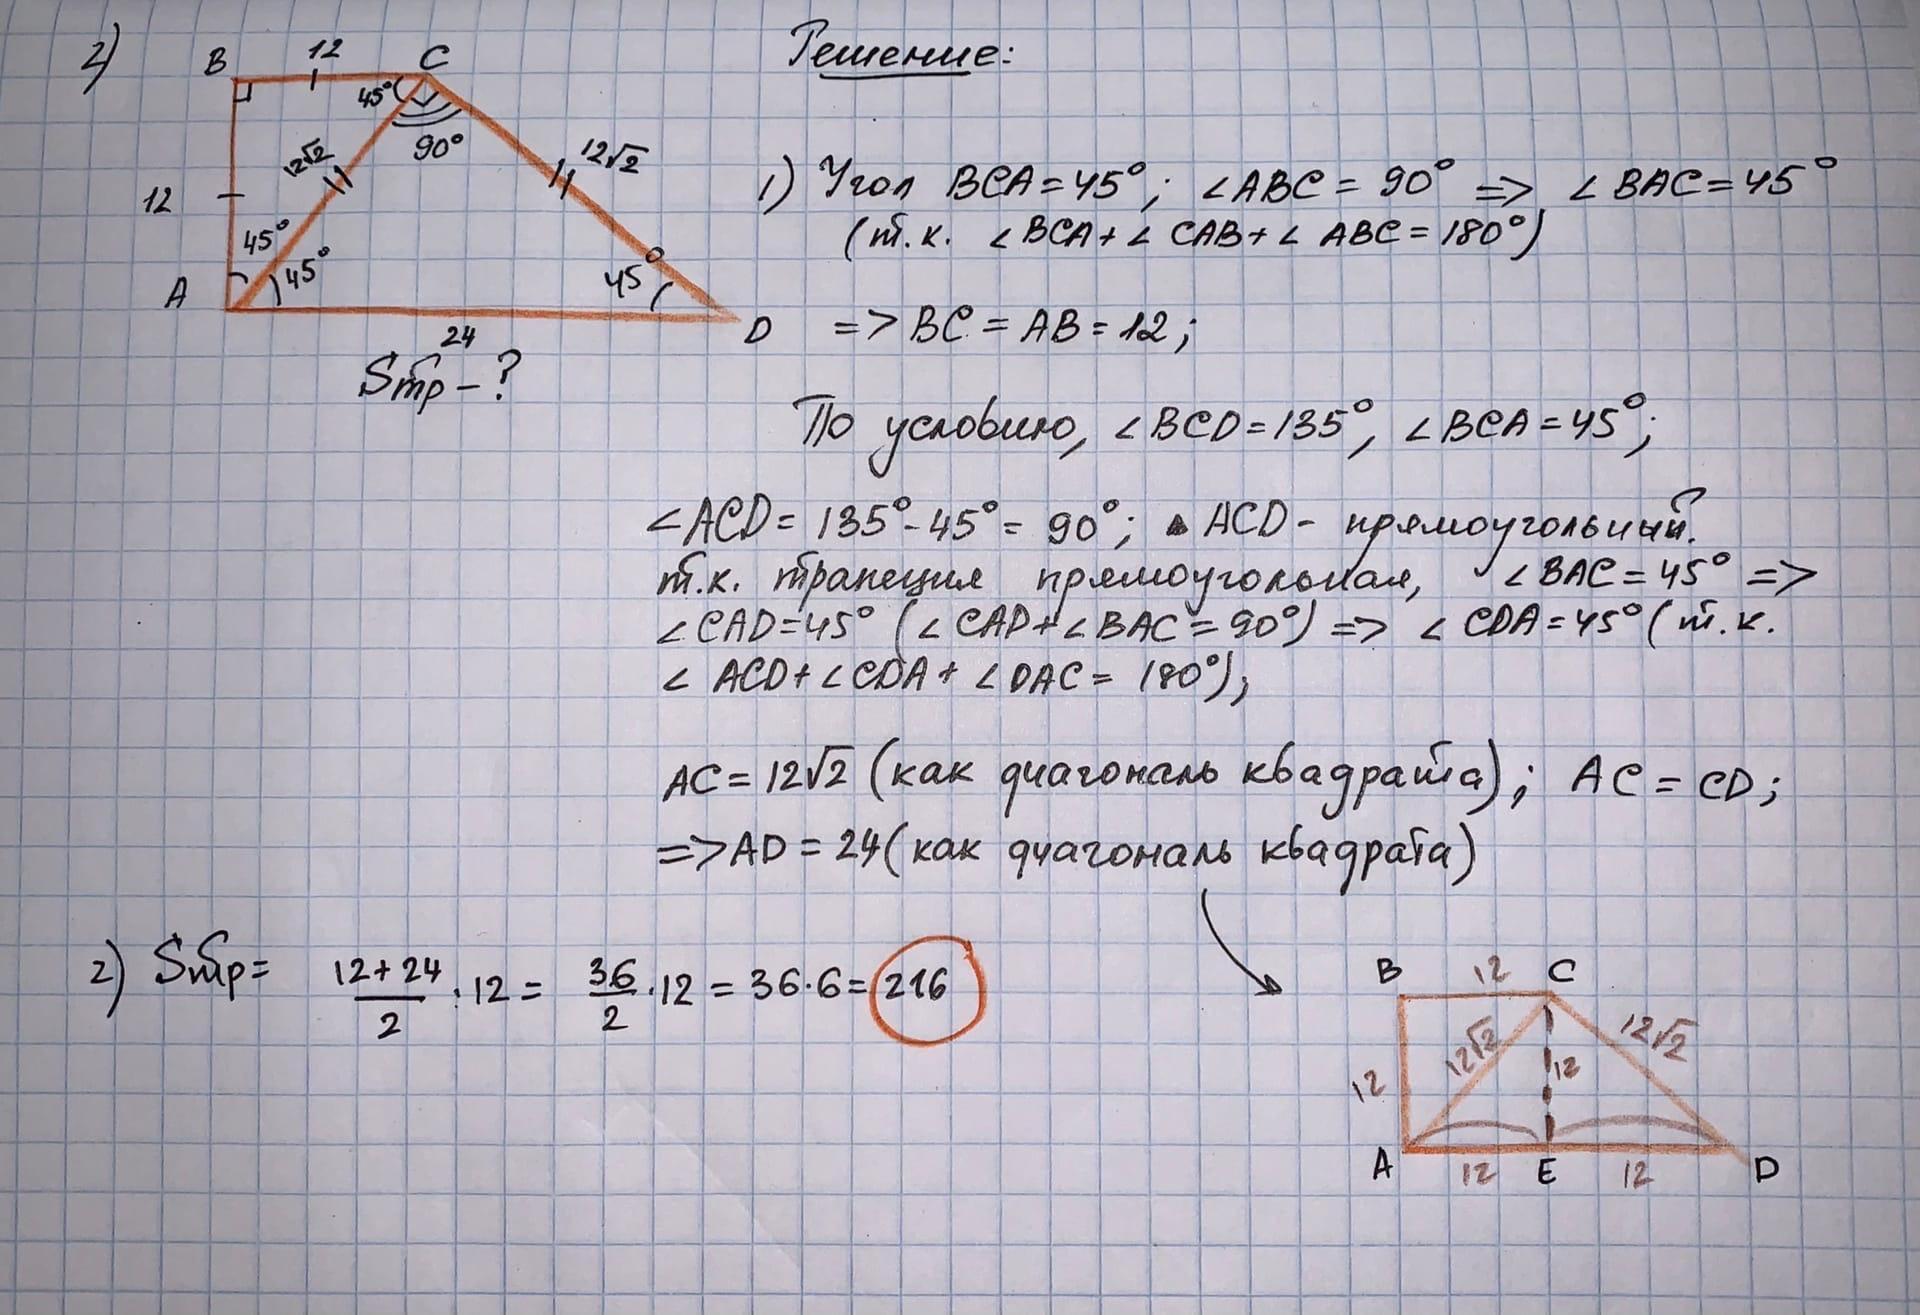 2)
B 12 C
Решение:
45°
90°
12√2
12√2
12
45°
45°
45°
A
24
D
Sтр - ?
1) Угол BCA = 45°; ∠ABC = 90° => ∠BAC = 45°
(т.к. ∠BCA + ∠CAB + ∠ABC = 180°)
=> BC = AB = 12;
По условию, ∠BCD = 135°, ∠BCA = 45°;
∠ACD = 135° - 45° = 90°; ▲ACD - прямоугольный.
т.к. трапеция прямоугольная, ∠BAC = 45° =>
∠CAD = 45° (∠CAD + ∠BAC = 90°) => ∠CDA = 45° (т.к.
∠ACD + ∠CDA + ∠DAC = 180°);
AC = 12√2 (как диагональ квадрата); AC = CD;
=> AD = 24 (как диагональ квадрата)
2) Sтр = (12+24)/2 · 12 = 36/2 · 12 = 36·6 = 216
B 12 C
12√2
12√2
12
12
A 12 E 12 D